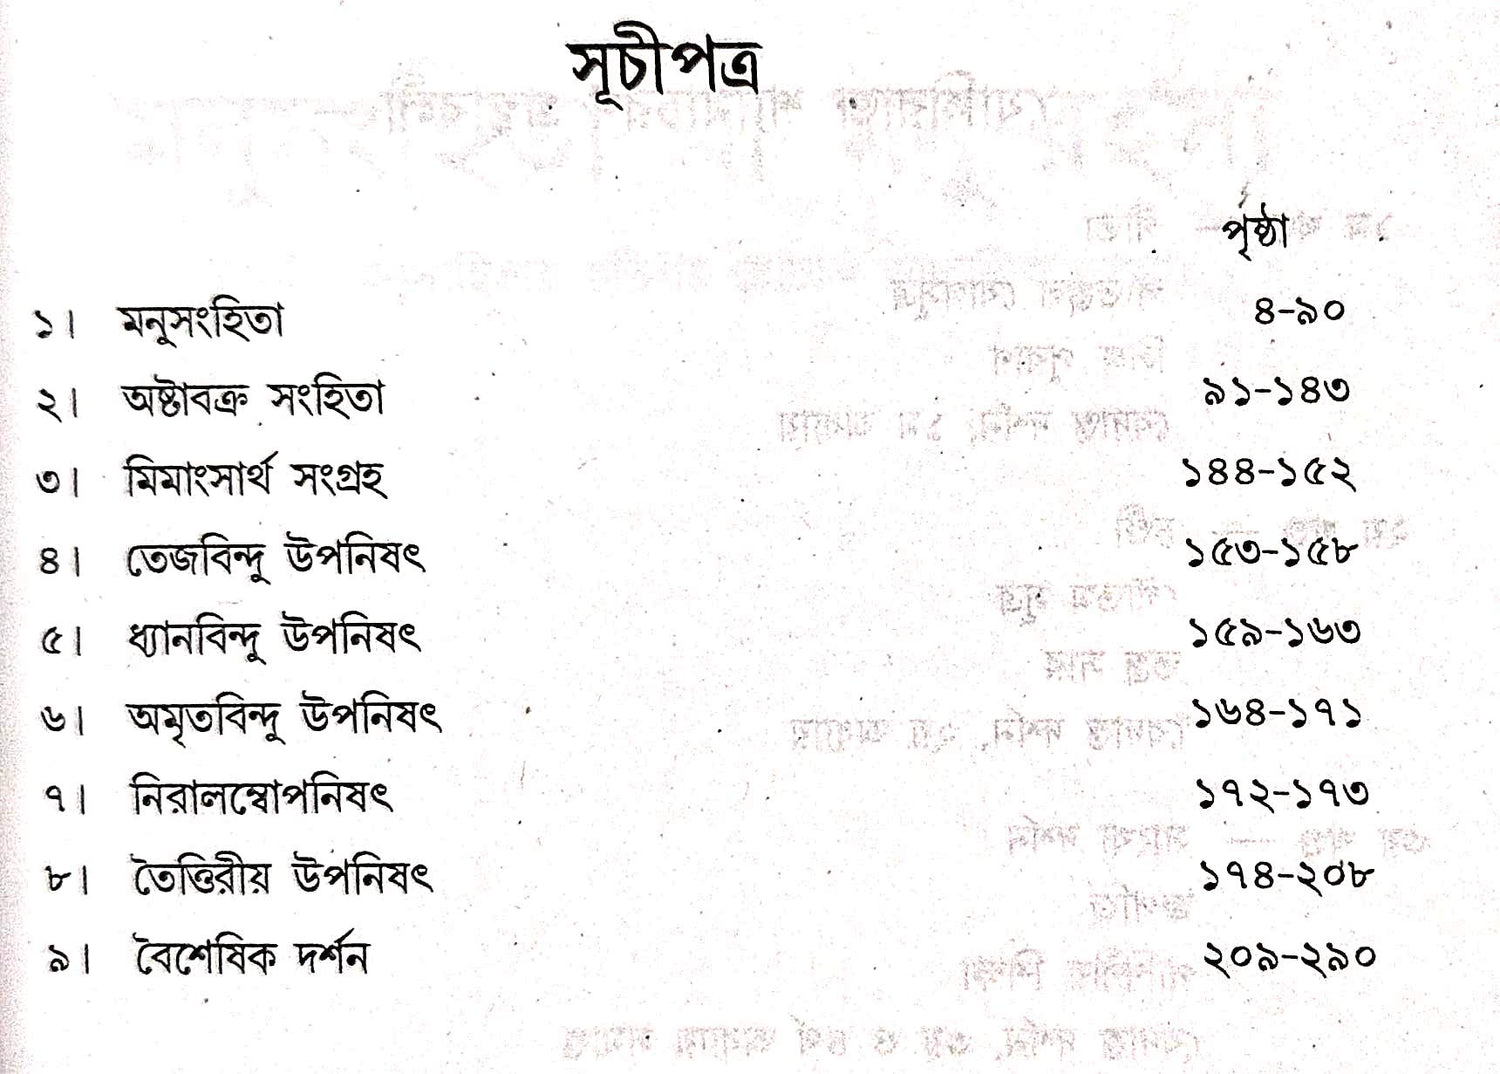 সূচীপত্র
পৃষ্ঠা
১। মনুসংহিতা ৪-৯০
২। অষ্টাবক্র সংহিতা ৯১-১৪৩
৩। মিমাংসার্থ সংগ্রহ ১৪৪-১৫২
৪। তেজবিন্দু উপনিষৎ ১৫৩-১৫৮
৫। ধ্যানবিন্দু উপনিষৎ ১৫৯-১৬৩
৬। অমৃতবিন্দু উপনিষৎ ১৬৪-১৭১
৭। নিরালম্বোপনিষৎ ১৭২-১৭৩
৮। তৈত্তিরীয় উপনিষৎ ১৭৪-২০৮
৯। বৈশেষিক দর্শন ২০৯-২৯০